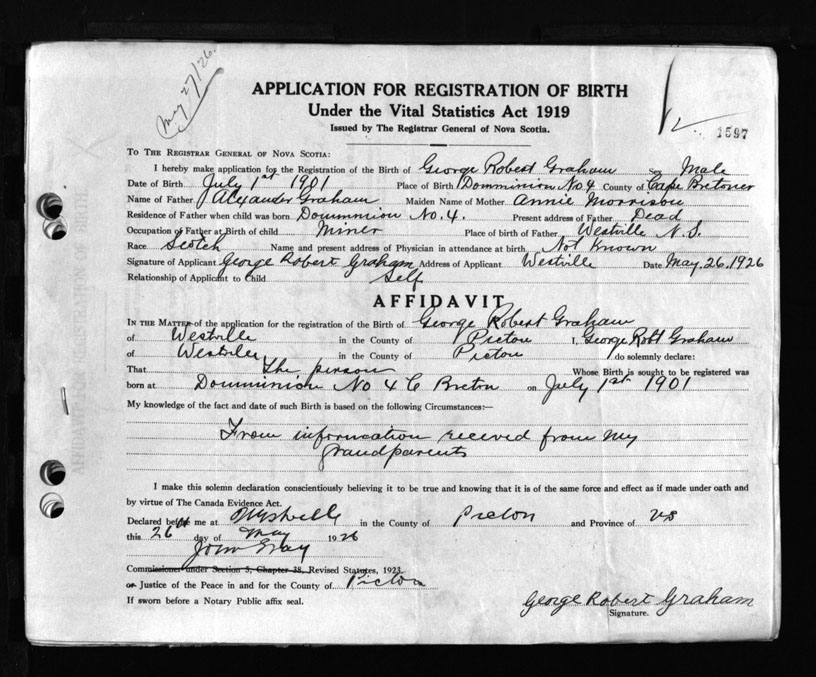 May 27/26.
APPLICATION FOR REGISTRATION OF BIRTH
Under the Vital Statistics Act 1919
Issued by The Registrar General of Nova Scotia.
1597
TO THE REGISTRAR GENERAL OF NOVA SCOTIA:
I hereby make application for the Registration of the Birth of George Robert Graham Sex Male
Date of Birth July 1st 1901 Place of Birth Domminion No. 4 County of Cape Bretoner
Name of Father Alexander Graham Maiden Name of Mother Annie Morrison
Residence of Father when child was born Domminion No. 4. Present address of Father Dead
Occupation of Father at Birth of child Miner Place of birth of Father Westville N.S.
Race Scotch Name and present address of Physician in attendance at birth Not Known
Signature of Applicant George Robert Graham Address of Applicant Westville Date May. 26. 1926
Relationship of Applicant to Child Self
AFFIDAVIT
IN THE MATTER of the application for the registration of the Birth of George Robert Graham
of Westville in the County of Pictou I, George Robt Graham
of Westville in the County of Pictou do solemnly declare:
That the person Whose Birth is sought to be registered was
born at Domminion No 4 C Breton on July 1st 1901
My knowledge of the fact and date of such Birth is based on the following Circumstances:—
From information received from my
grandparents
I make this solemn declaration conscientiously believing it to be true and knowing that it is of the same force and effect as if made under oath and
by virtue of The Canada Evidence Act.
Declared before me at Westville in the County of Pictou and Province of NS
this 26th day of May 1926
John Gray
Commissioner under Section 5, Chapter 38, Revised Statutes, 1923.
or Justice of the Peace in and for the County of Pictou
If sworn before a Notary Public affix seal.
George Robert Graham
Signature.